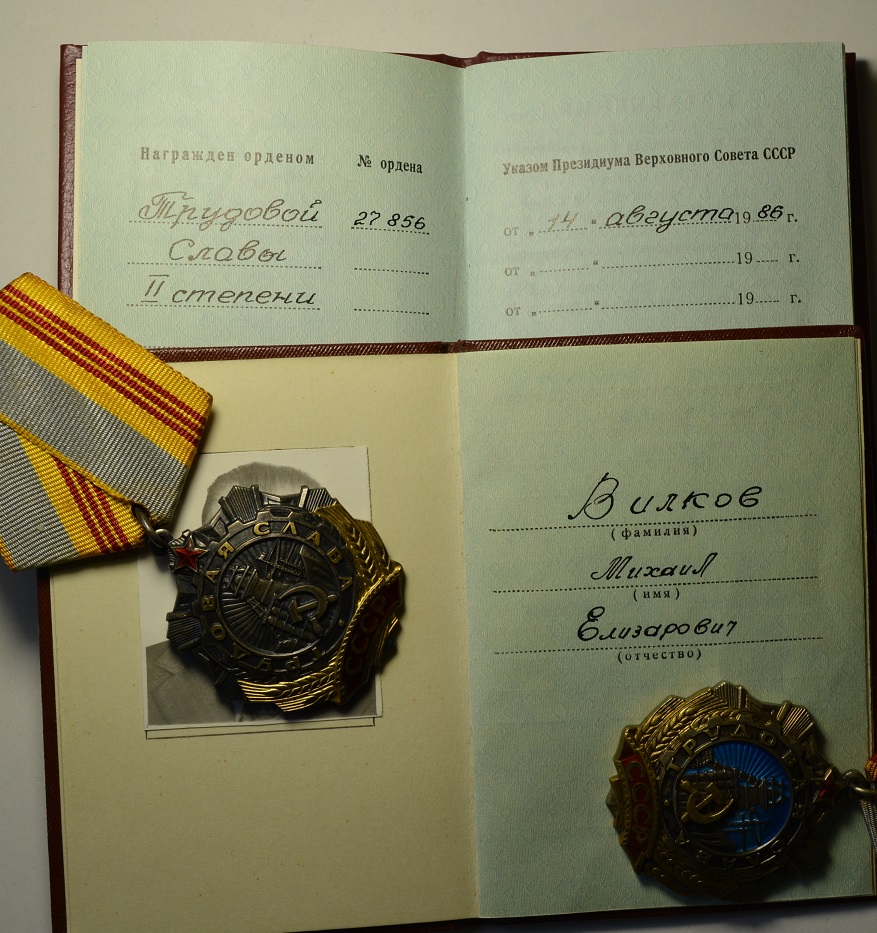 Награжден орденом № ордена
Трудовой 27 856
Славы
II степени
Указом Президиума Верховного Совета СССР
от „ 14 “ августа 19 86 г.
от „ “ 19 г.
от „ “ 19 г.
Вилков
(фамилия)
Михаил
(имя)
Елизарович
(отчество)
ТРУДОВАЯ СЛАВА
СССР
ТРУДОВАЯ СЛАВА
СССР